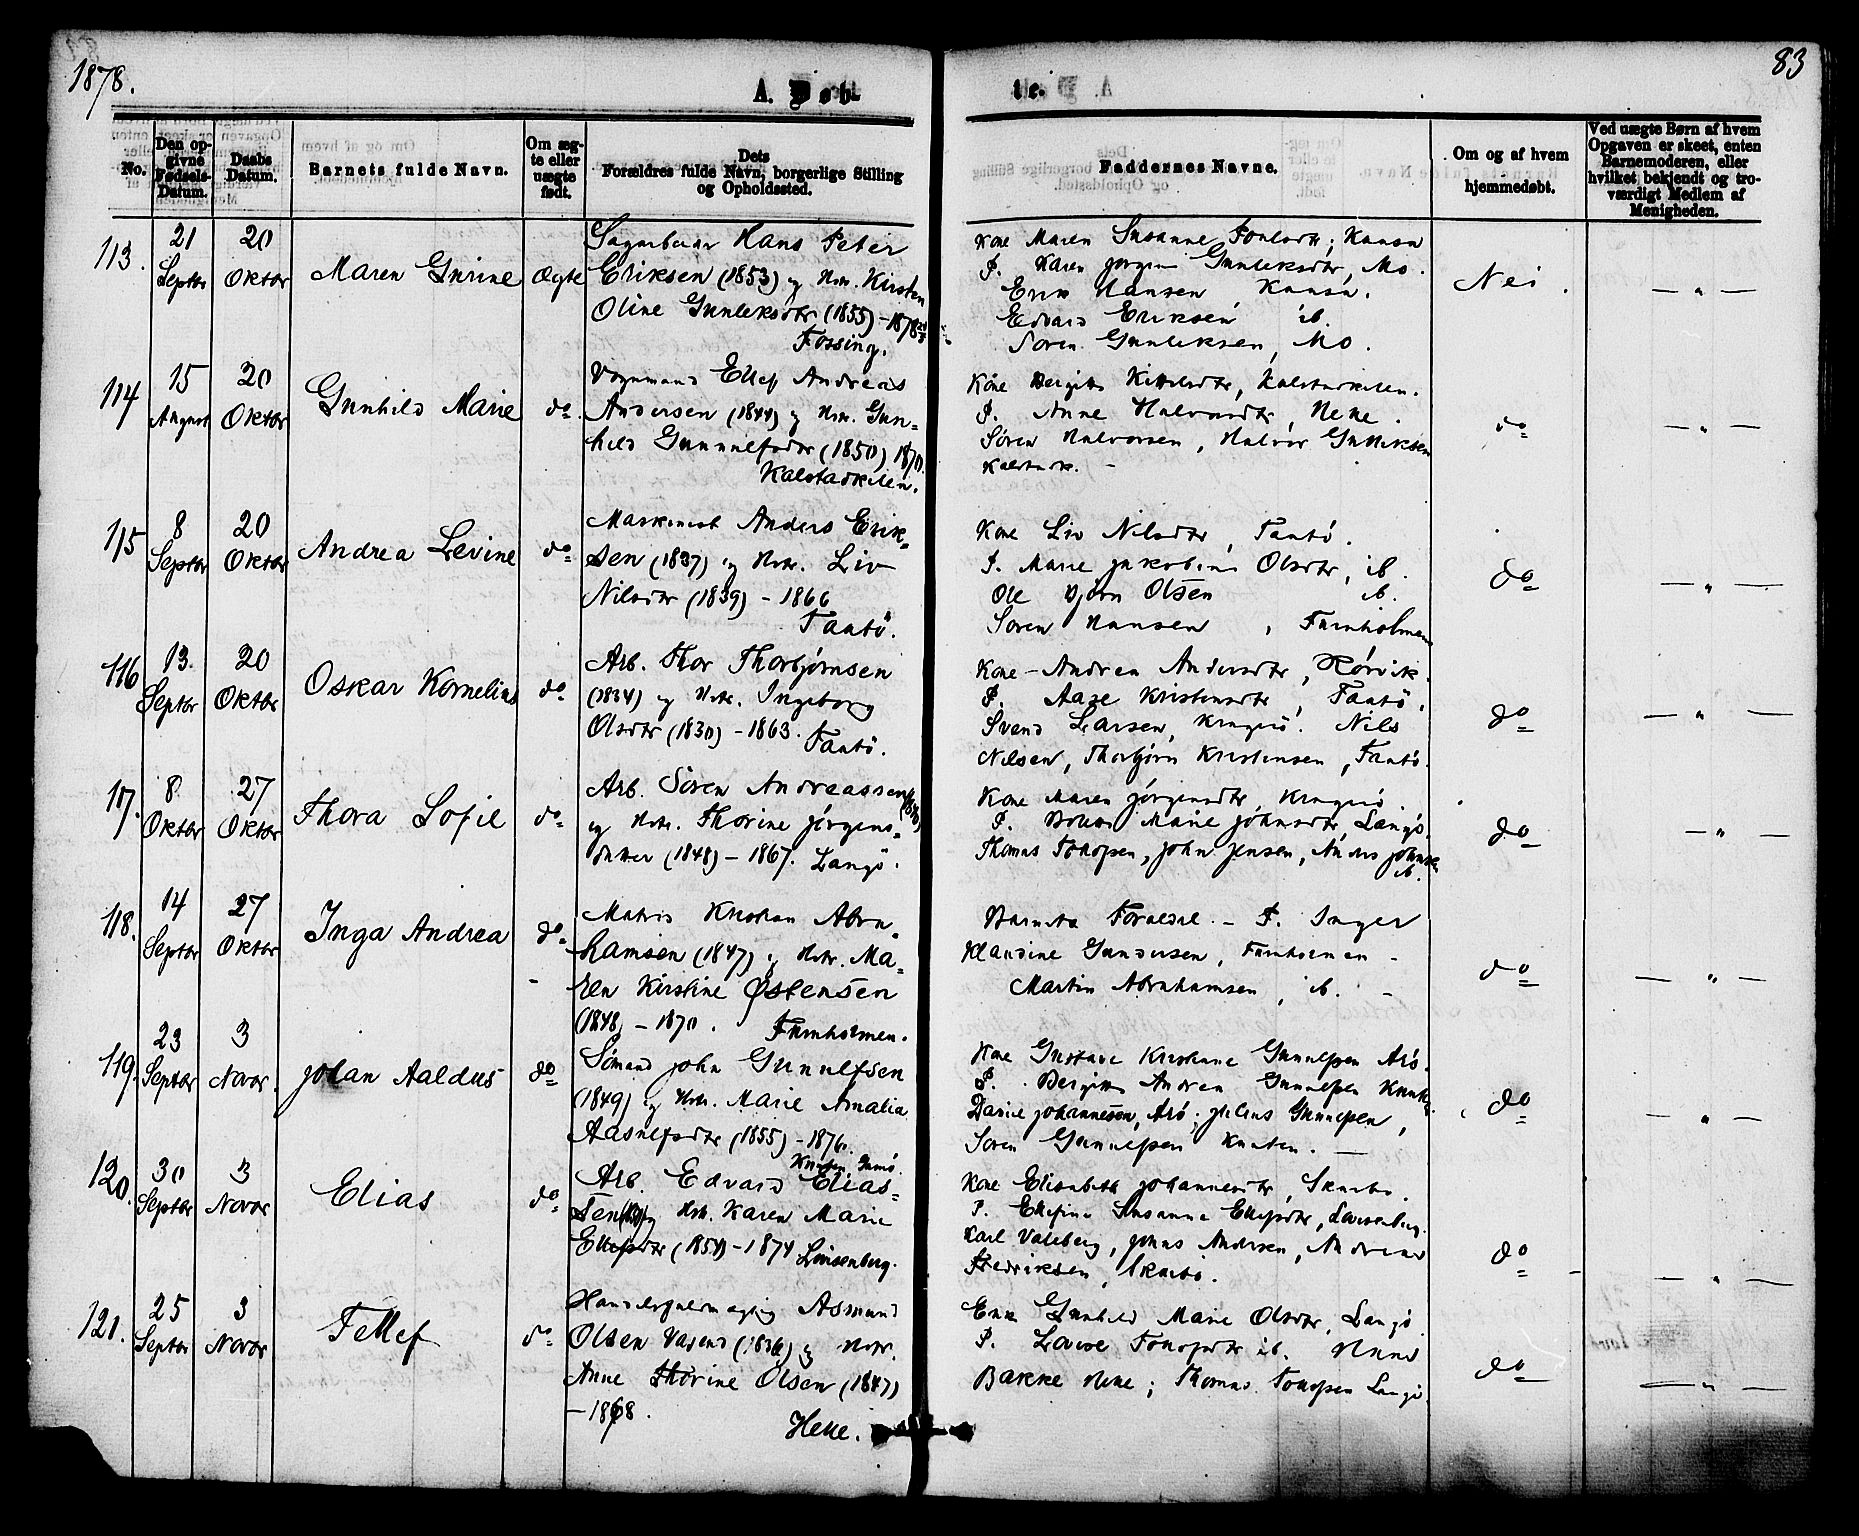 1878.
83
A. Døb-
te.
No.
Den op-
givne
Fødsels-
Datum.
Daabs
Datum.
Barnets fulde Navn.
Om ægte
te eller
uægte
født.
Dets
Forældres fulde Navn, borgerlige Stilling
og Opholdssted.
Faddernes Navne.
Om og af hvem
hjemmedøbt.
Ved uægte Børn af hvem
Opgaven er skeet, enten
Barnemoderen, eller
hvilket bekjendt og tro-
værdigt Medlem af
Menigheden.
113.
21
Septbr
20
Oktbr
Maren Gurine
Ægte
Hans Peter
Eriksen (1853) og Hstr. Kirsten
Oline Gunleksdtr (1855) - 1878
Fossing.
Kone Maren Susanne
P. Karen Jørgine Gunleksdtr, Mo.
Erik Hansen
Edvard Eriksen ib.
Søren Gunleksen, Mo.
Nei.
— " —
114
15
August
20
Oktbr
Gunhild Marie
do
Vognmand Ellef Andreas
Andersen (1844) og Hstr. Gun-
hild Gunnulfsdtr (1850) 1870.
Kalstadkilen.
Kone Bergitte Kittilsdtr, Kalstadkilen.
P. Anne Halvorsdtr, Helle.
Søren Halvorsen, Halvor Gulliksen
Kalstadk. -
do
— " —
115
8
Septbr
20
Oktbr
Andrea Levine
do
Maskinist Anders Erik-
sen (1837) og Hstr. Liv
Nilsdtr (1839) - 1866
Tåatø.
Kone Liv Nilsdtr, Tåatø.
P. Marie Jakobine Olsdtr, ib.
Ole Bjørn Olsen ib.
Søren Hansen, Furuholmen
do
— " —
116
13.
Septbr
20
Oktbr
Oskar Kornelius
do
Arb. Thor Thorbjørnsen
(1834) og Hstr. Ingeborg
Olsdtr (1830) - 1863. Tåatø.
Kone - Andrea Andersdtr, Rørvik.
P. Aase Kristensdtr, Tåatø.
Svend Larsen, Nils
Nilsen, Thorbjørn Kristensen, Tåatø.
do
— " —
117.
8.
Oktbr
27
Oktbr
Thora Sofie
do
Arb. Søren Andreassen
og Hstr. Thorine Jørgens-
datter (1848) - 1867. Langø.
Kone Maren Jørgensdtr,
P. Marie Johnsdtr, Langø.
Thomas Tollefsen, John Jensen, Anders Johnsen
ib.
do
— " —
118.
14
Septbr
27
Oktbr
Inga Andrea
do
Matros Kristian Abra-
hamsen (1847) og Hstr. Ma-
ren Kirstine Østensen
(1848) - 1870. Furuholmen.
Barnets Forældre. - P. Inger
Klaudine Gundersen, Furuholmen -
Martin Abrahamsen, ib. -
do
— " —
119.
23
Septbr
3
Novbr.
Johan Aaldus
do
Sømand John Gunulfsen
(1849) og Hstr. Marie Amalia
Aasulfsdtr (1855) - 1876.
Kone Gustave Kristiane Gunnulfsen Arø.
P. Bergitte Andrea Gunnulfsen
Johannesen, Arø; Julius Gunnulfsen,
Søren Gunnulfsen
do
— " —
120.
30
Septbr
3
Novbr
Elias
do
Arb. Edvard Elias-
sen og Hstr. Karen Marie
Ellefsdtr (1854) - 1874 Louisenberg.
Kone Elisabeth Johannesdtr, Skaabø.
P. Ellefine Susanne Ellefsdtr, Louisenberg.
Karl Valeberg, Jonas Andersen, Andreas
Fredriksen, Skaabø.
do
— " —
121.
25
Septbr
3
Novbr
Tellef
do
Handelsfuldmægtig Asmund
Olsen (1836) og Hstr.
Anne Thorine Olsen (1847)
- 1868.
Helle.
Enke Gunhild Marie Olsdtr, Langø
P. Lovise Tollefsdtr ib. Hans
Bakke Helle; Thomas Tollefsen Langø
do
— " —